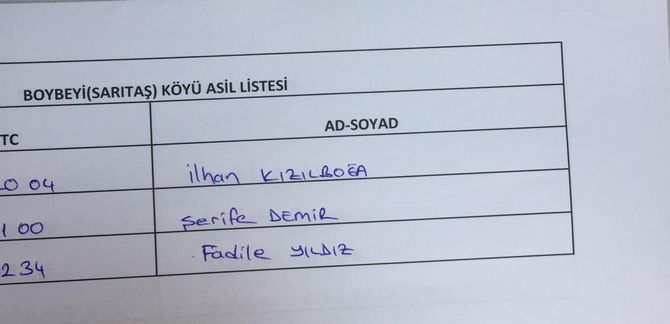 BOYBEYİ(SARITAŞ) KÖYÜ ASİL LİSTESİ
TC AD-SOYAD
0 04 İlhan KIZILBOĞA
1 00 Şerife DEMİR
234 Fadile YILDIZ